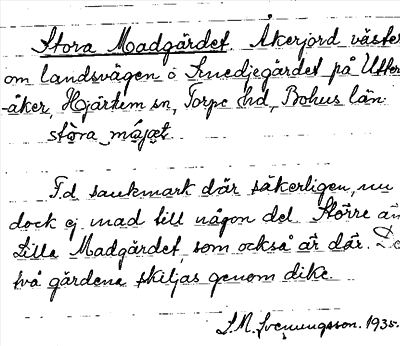 Stora Madgärdet. Åkerjord väster
om landsvägen å Smedjegärdet på Utter-
-åker, Hjärtem sn, Torpe hd, Bohus län.
stòra màjæt
F.d saukmark där säkerligen, nu
dock ej mad till någon del. Större än
Lilla Madgärdet, som också är där. De
två gärdena skiljas genom dike.
S.M. Svenungsson. 1935.